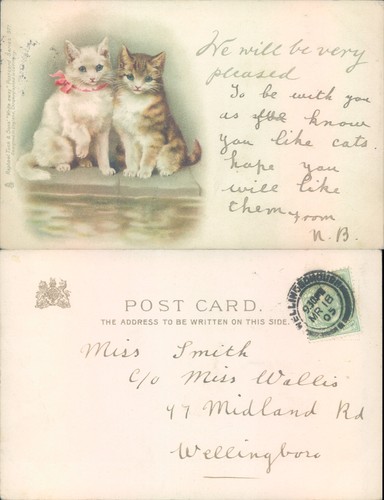 We will be very
pleased
To be with you
as know
you like cats.
hope you
will like
them from
N.B.
Raphael Tuck & Sons' "Write away" Postcard
POST CARD.
THE ADDRESS TO BE WRITTEN ON THIS SIDE.
WELLINGBOROUGH
MR 18
03
Miss Smith
c/o Miss Wallis
47 Midland Rd
Wellingboro